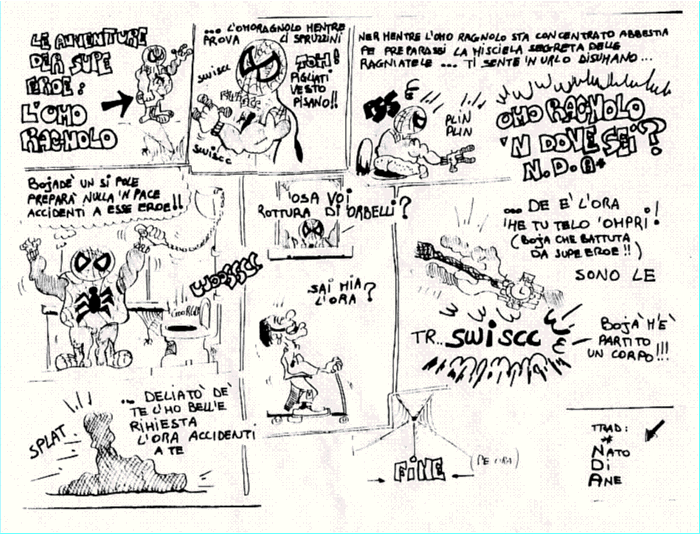 LE AVVENTURE
DER SUPE
EROE:
L'OMO
RAGNOLO
... L'OMORAGNOLO MENTRE
PROVA GLI SPRUZZINI
SWISCC
TOIH!
PIGLIATI
VESTO
PISANO!!
SWISCC
NER MENTRE L'OMO RAGNOLO STA CONCENTRATO ABBESTIA
PE PREPARASSI LA MISCIELA SEGRETA DELLE
RAGNIATELE ... TI SENTE 'N URLO DISUMANO...
PLIN
PLIN
OMO RAGNOLO
'N DOVE SEI?
N.D.A*
BOJADÈ UN SI POLE
PREPARÀ NULLA 'N PACE
ACCIDENTI A ESSE EROE!!
WOOSSCC
'OSA VOI
ROTTURA DI CORBELLI?
SAI MIA
L'ORA?
... DE E' L'ORA
'HE TU TELO 'OMPRI!
(BOJA CHE BATTUTA
DA SUPEREROE!!)
SONO LE
TR... SWISCC
BOJA' M'È
PARTITO
UN CORPO!!!
SPLAT
... DELIATO' DE'
TE L'HO BELL'E
RIHIESTA
L'ORA ACCIDENTI
A TE
FINE
(DE ORA)
TRAD:
*
NATO
DI
ANE